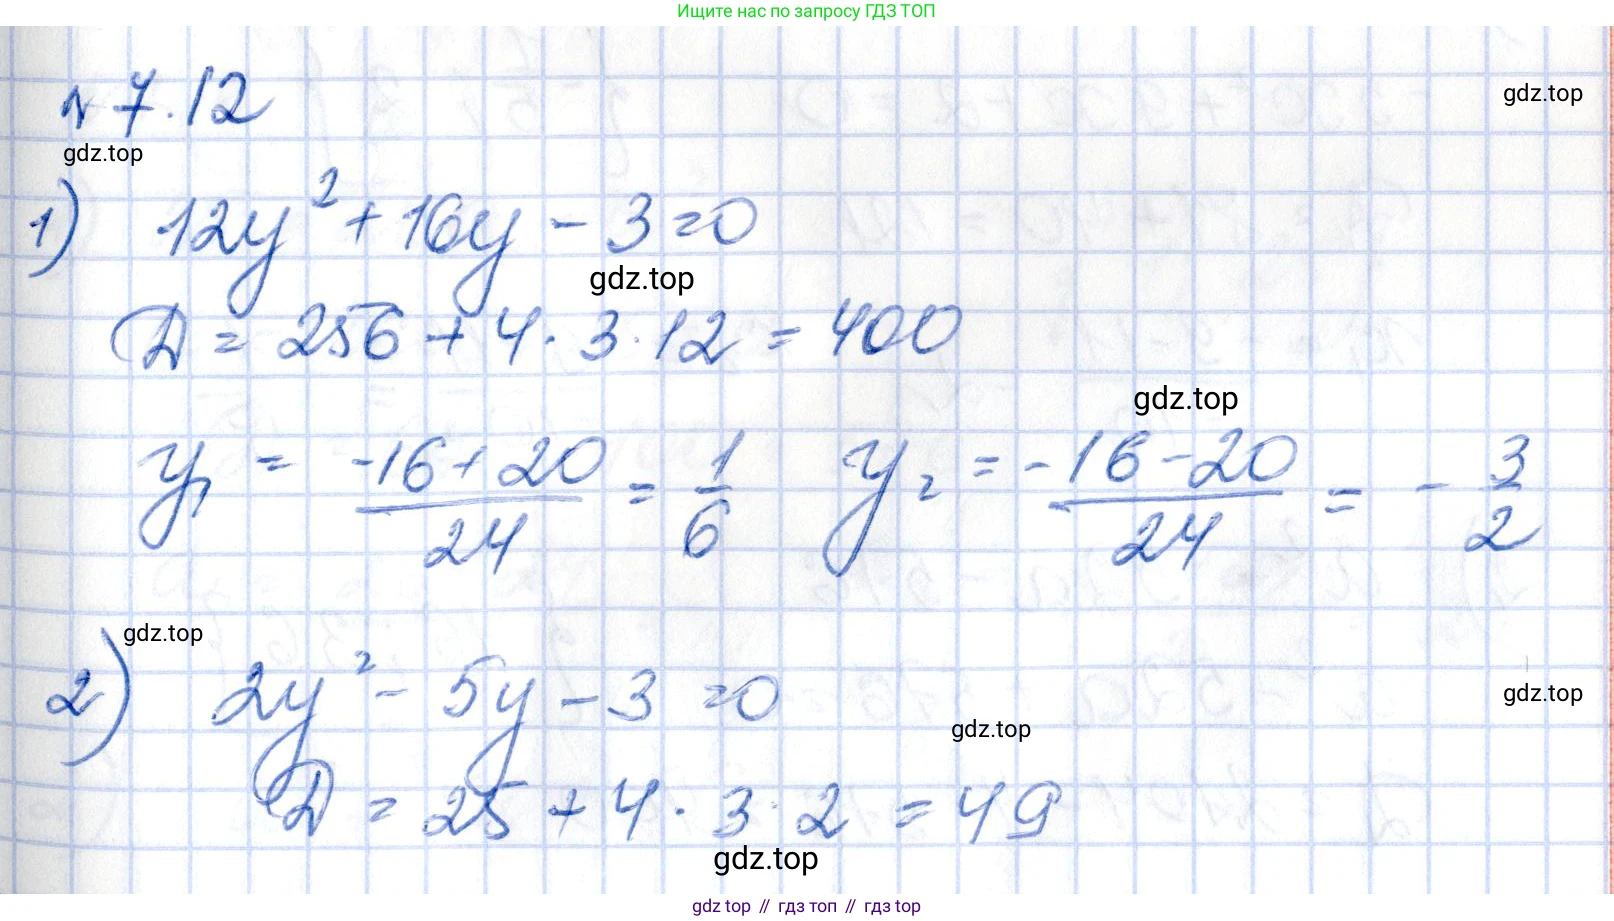 Ищите нас по запросу ГДЗ ТОП
№ 7.12
gdz.top
gdz.top
1) 12y² + 16y - 3 = 0
gdz.top
D = 256 + 4 · 3 · 12 = 400
gdz.top
y₁ = (-16 + 20)/24 = 1/6 y₂ = (-16 - 20)/24 = - 3/2
gdz.top
2) 2y² - 5y - 3 = 0
gdz.top
gdz.top
D = 25 + 4 · 3 · 2 = 49
gdz.top
gdz top // гдз топ // гдз top